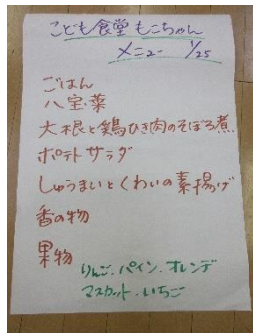 こども食堂もこちゃん
メニュー 1/25
ごはん
八宝菜
大根と鶏ひき肉のそぼろ煮
ポテトサラダ
しゅうまいとくわいの素揚げ
香の物
果物
りんご、パイン、オレンヂ
マスカット、いちご